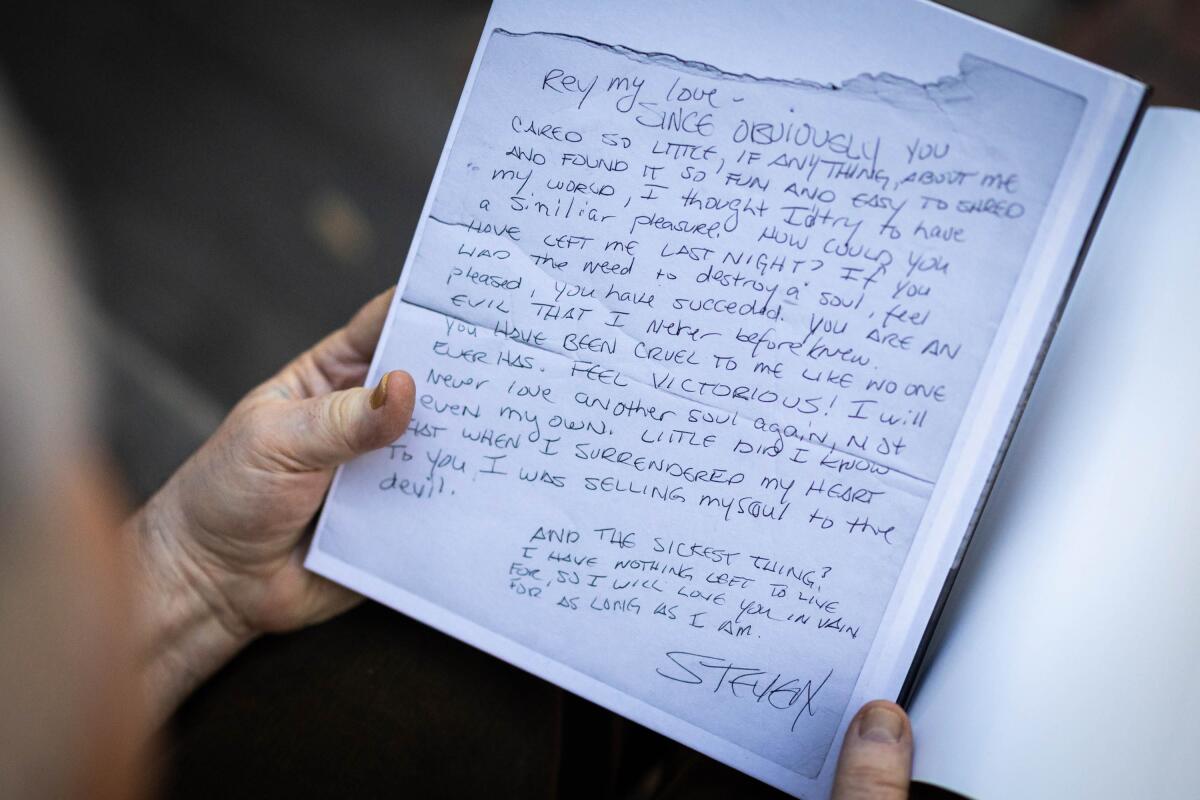 Rey my love -
SINCE OBVIOUSLY YOU
CARED SO LITTLE, IF ANYTHING, ABOUT ME
AND FOUND IT SO FUN AND EASY TO SHRED
MY WORLD, I thought I'd try to have
a Similiar pleasure! HOW COULD YOU
HAVE LEFT ME LAST NIGHT? If you
HAD the need to destroy a soul, feel
pleased, you have succeded. YOU ARE AN
EVIL THAT I Never before knew.
YOU HAVE BEEN CRUEL TO ME LIKE NO ONE
EVER HAS. FEEL VICTORIOUS! I will
Never love another soul again, NOT
even my own. LITTLE DID I KNOW
THAT WHEN I SURRENDERED MY HEART
To you I WAS SELLING my soul to the
devil.
AND THE SICKEST THING?
I HAVE NOTHING LEFT TO LIVE
FOR, SO I WILL LOVE YOU IN VAIN
FOR AS LONG AS I AM.
STEVEN